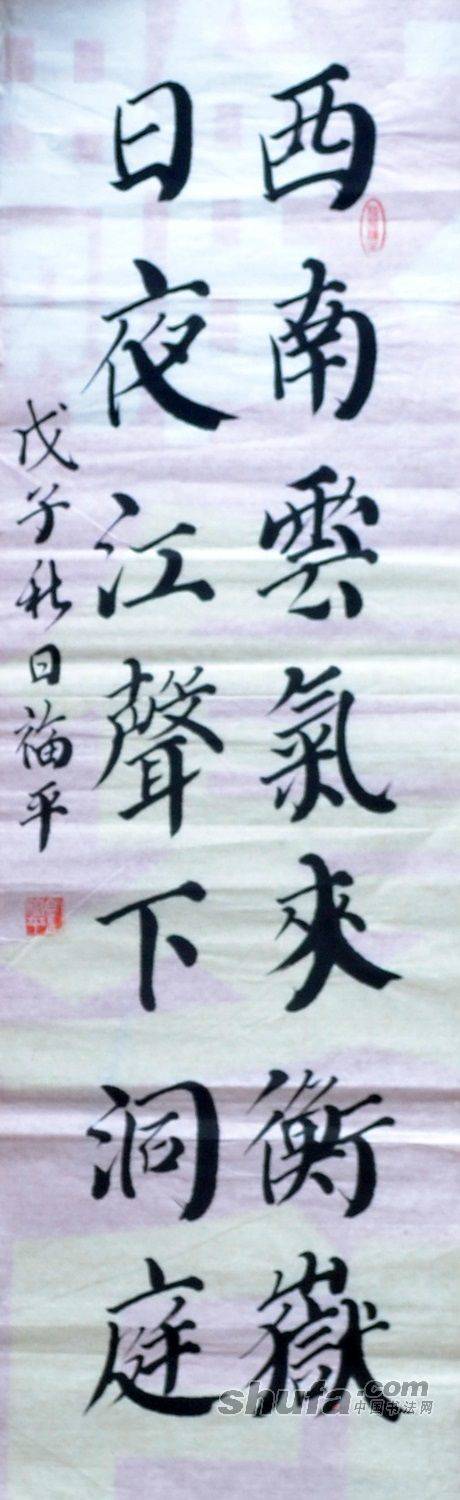 西南雲氣夾衡嶽
日夜江聲下洞庭
戊子秋日福平
shufa.com
中国书法网